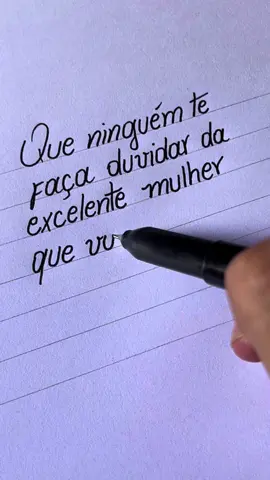 Que ninguém te
Faça duvidar da
excelente mulher
que